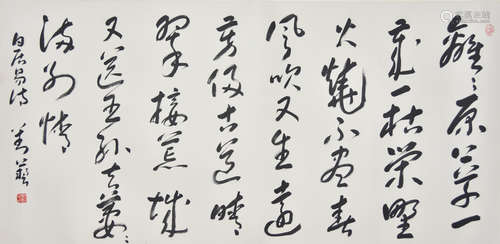 離〻原上草一
歲一枯榮野
火燒不盡春
風吹又生遠
芳侵古道晴
翠接荒城
又送王孫去萋〻
滿別情
白居易詩 劉藝